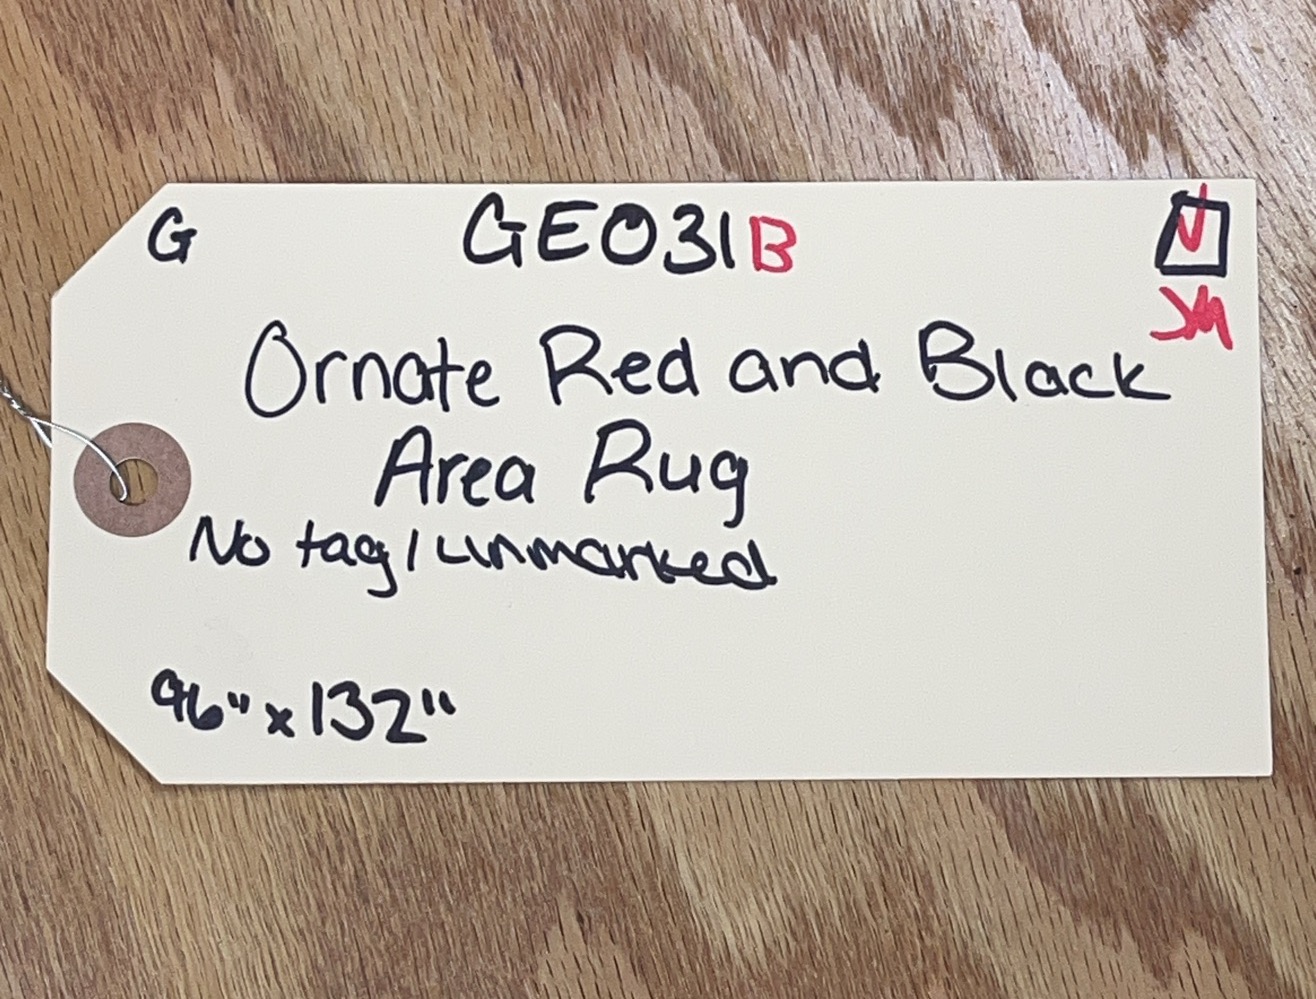 G GEO31B
JM
Ornate Red and Black
Area Rug
No tag/unmarked
96" x 132"